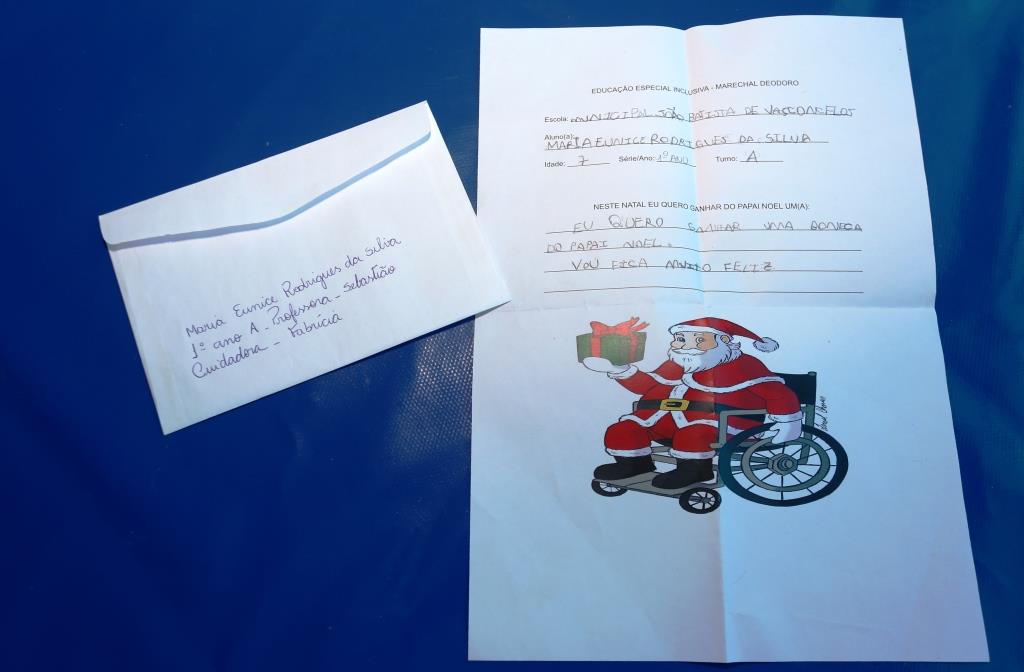 EDUCAÇÃO ESPECIAL INCLUSIVA - MARECHAL DEODORO
Escola: MUNICIPAL JOÃO BATISTA DE VASCONCELOS
Aluno(a): MARIA EUNICE RODRIGUES DA SILVA
Idade: 7 Série/Ano: 1º ANO Turno: A
NESTE NATAL EU QUERO GANHAR DO PAPAI NOEL UM(A):
EU QUERO GANHAR UMA BONECA
DO PAPAI NOEL.
VOU FICA MUITO FELIZ
Maria Eunice Rodrigues da Silva
1º ano A - Professora - Sebastião
Cuidadora - Fabrícia